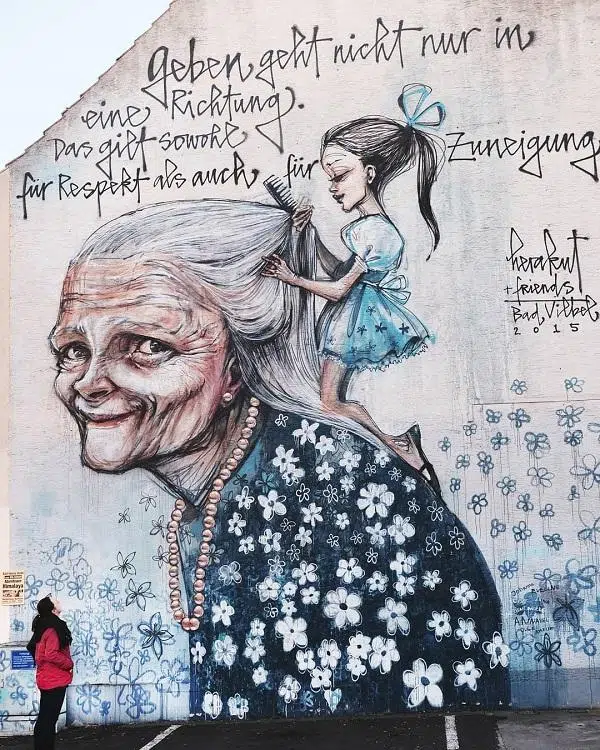 Geben geht nicht nur in
eine Richtung.
Das gilt sowohl
für Respekt als auch für Zuneigung
herakut
+ friends
Bad Vilbel
2015
Himalaya